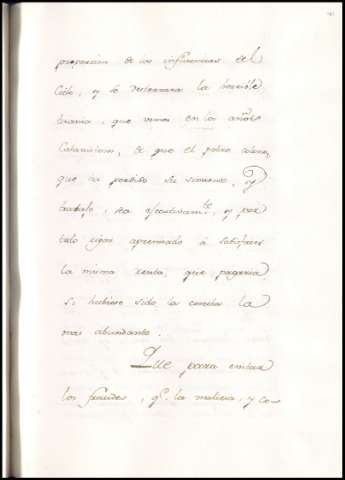 proporcion de los influencias del
Cielo, y se desterrara la horrible
tirania, que vemos en los años
Calamitosos, de que el pobre colono,
que ha perdido su simiente, y
trabajo, sea efectivam.te, y por
todo rigor apremiado á satisfacer
la misma renta, que pagaria
si hubiese sido la cosecha la
mas abundante.
Que para evitar
los fraudes, q.e la malicia, y co-